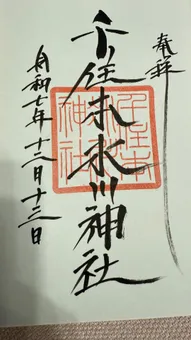 奉拝
千住本氷川神社
令和七年十二月十三日
千住本氷川神社